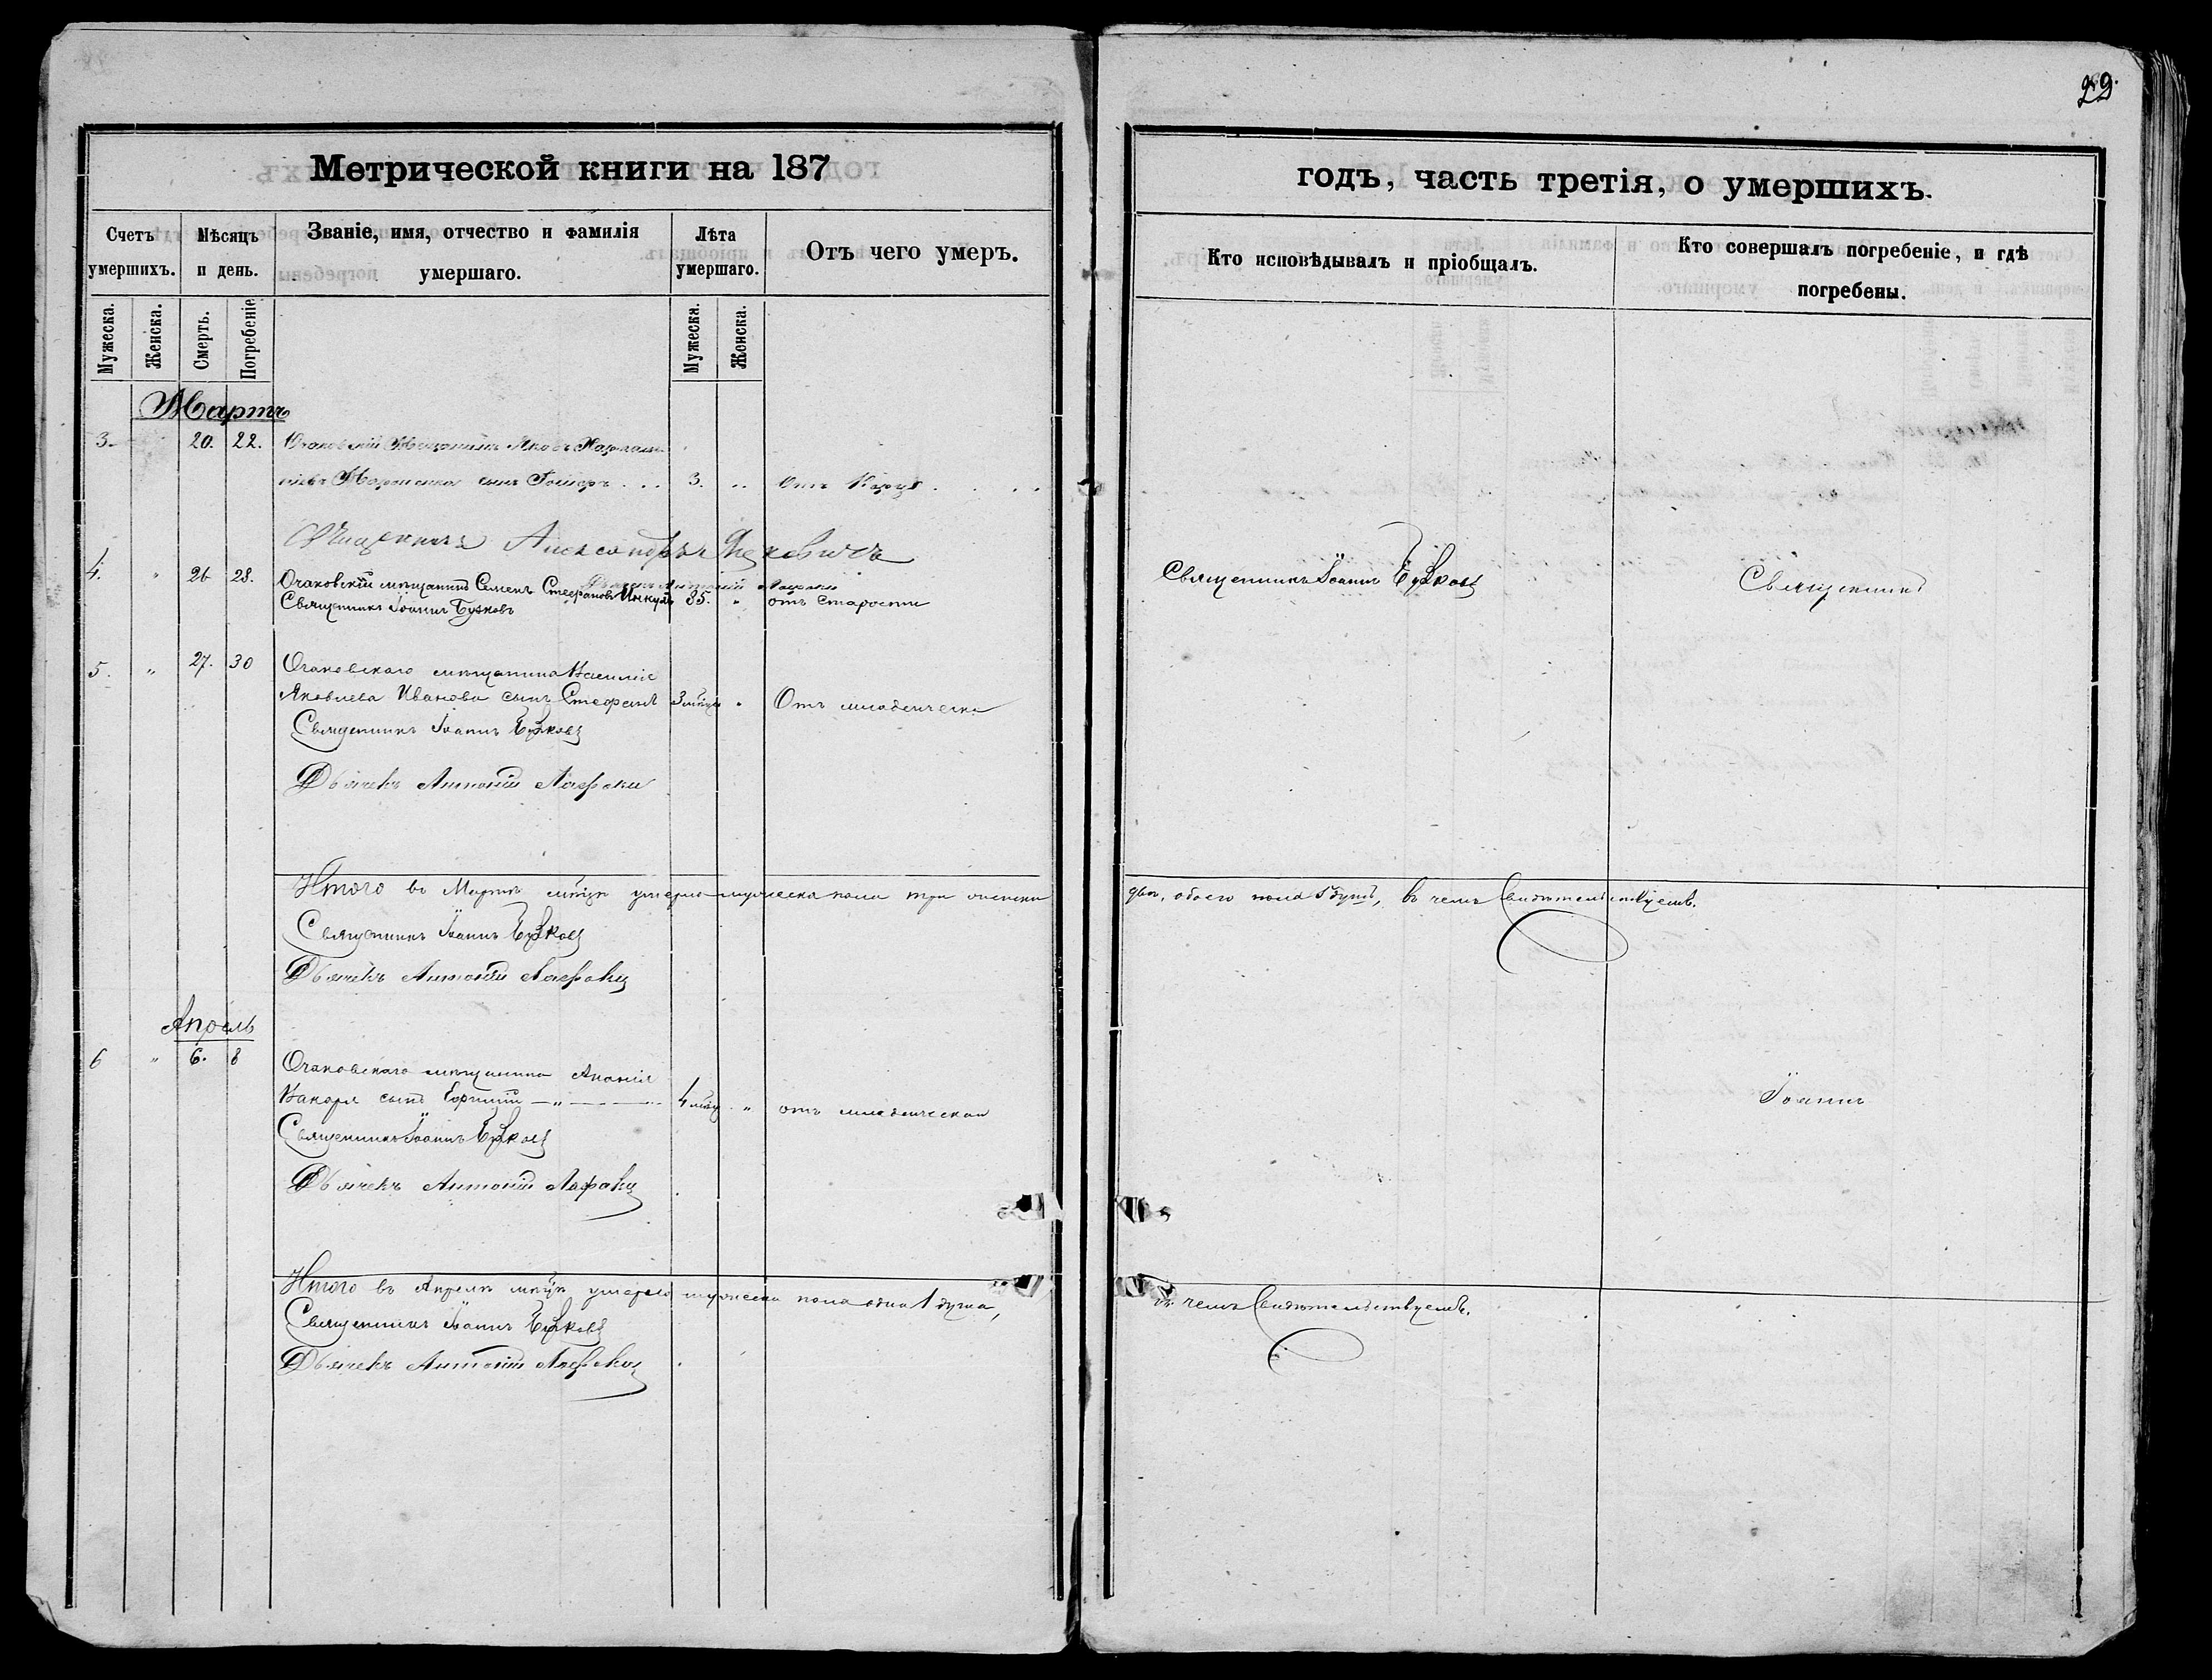 29.
Метрической книги на 187
годъ, часть третія, о умершихъ.
Счетъ умершихъ.
Мѣсяцъ и день.
Званіе, имя, отчество и фамилія
умершаго.
Лѣта умершаго.
Отъ чего умеръ.
Кто исповѣдывалъ и пріобщалъ.
Кто совершалъ погребеніе, и гдѣ
погребены.
Мужеска.
Женска.
Смерть.
Погребеніе
Мужеска.
Женска.
Мартъ
3. 20. 22. Очаковскій Мѣщанинъ Яковъ
сынъ 3. " Отъ
Священникъ Александръ
Дьячекъ Антоній
4. " 26 28. Очаковскій мѣщанинъ Семенъ Стефановъ 85. " отъ старости
Священникъ Іоаннъ Бучковъ
Священникъ Іоаннъ Бучковъ
Священникъ
5. " 27. 30 Очаковскаго мѣщанина Василія
Яковлева Иванова сынъ Стефанъ 3 мѣсяц " Отъ младенческ
Священникъ Іоаннъ Бучковъ
Дьячекъ Антоній
Итого въ Мартѣ мѣсяцѣ умерло мужеска пола три женска
два, обоего пола 5 душъ, въ чемъ Свидѣтельствуемъ.
Священникъ Іоаннъ Бучковъ
Дьячекъ Антоній
Апрѣль
6 " 6. 8 Очаковскаго мѣщанина Ананія
сынъ " 4 мѣсяц " отъ младенческой
Іоаннъ
Священникъ Іоаннъ Бучковъ
Дьячекъ Антоній
Итого въ Апрѣлѣ мѣсяцѣ умерло мужеска пола одна 1 душа,
въ чемъ Свидѣтельствуемъ.
Священникъ Іоаннъ Бучковъ
Дьячекъ Антоній